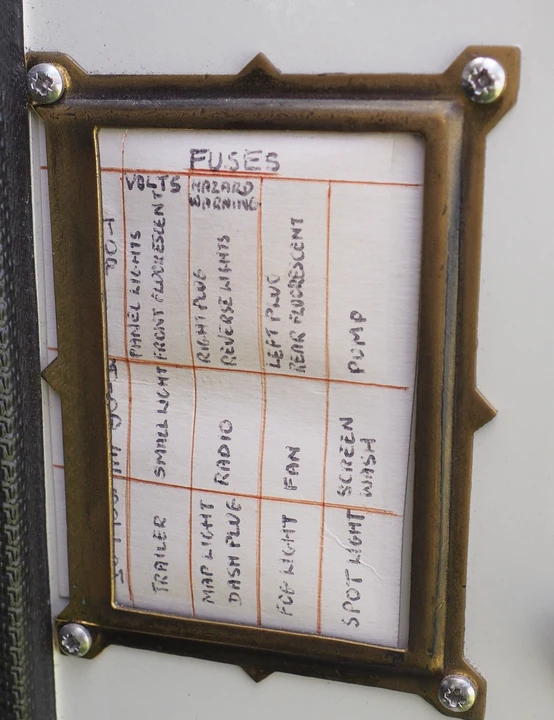 FUSES
VOLTS
HAZARD
WARNING
PANEL LIGHTS
FRONT FLUORESCENT
RIGHT PLUG
REVERSE LIGHTS
LEFT PLUG
REAR FLUORESCENT
PUMP
SMALL LIGHT
RADIO
FAN
SCREEN
WASH
TRAILER
MAP LIGHT
DASH PLUG
FOG LIGHT
SPOT LIGHT